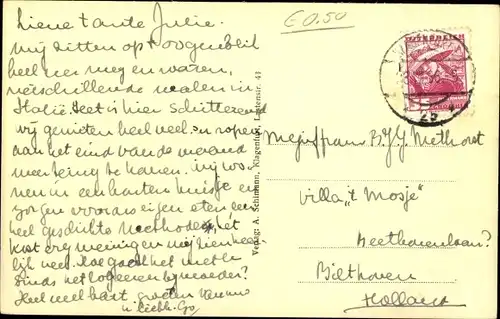 Lieve tante Julie.
Wij zitten op 't oogenblik
heel ver weg en waren
verschillende malen in
Italië. Het is hier schitterend
wij genieten heel veel en
aan het eind van de maand
te komen. Wij wo-
nen in een houten huisje en
zorgen voor ons eigen eten een
heel geschikte methode, het
kost erg weinig en wij zien heer-
lijk veel. Hoe gaat het met U
sinds het logeeren bij moeder?
Heel veel hart. groeten van uw
£ 0.50
ÖSTERREICH
Verlag: A. Schlmann, Klagenfurt, 41
Mejuffrouw B.J.J. Methorst
Villa „'t Mosje"
Beethovenlaan?
Bilthoven
Holland